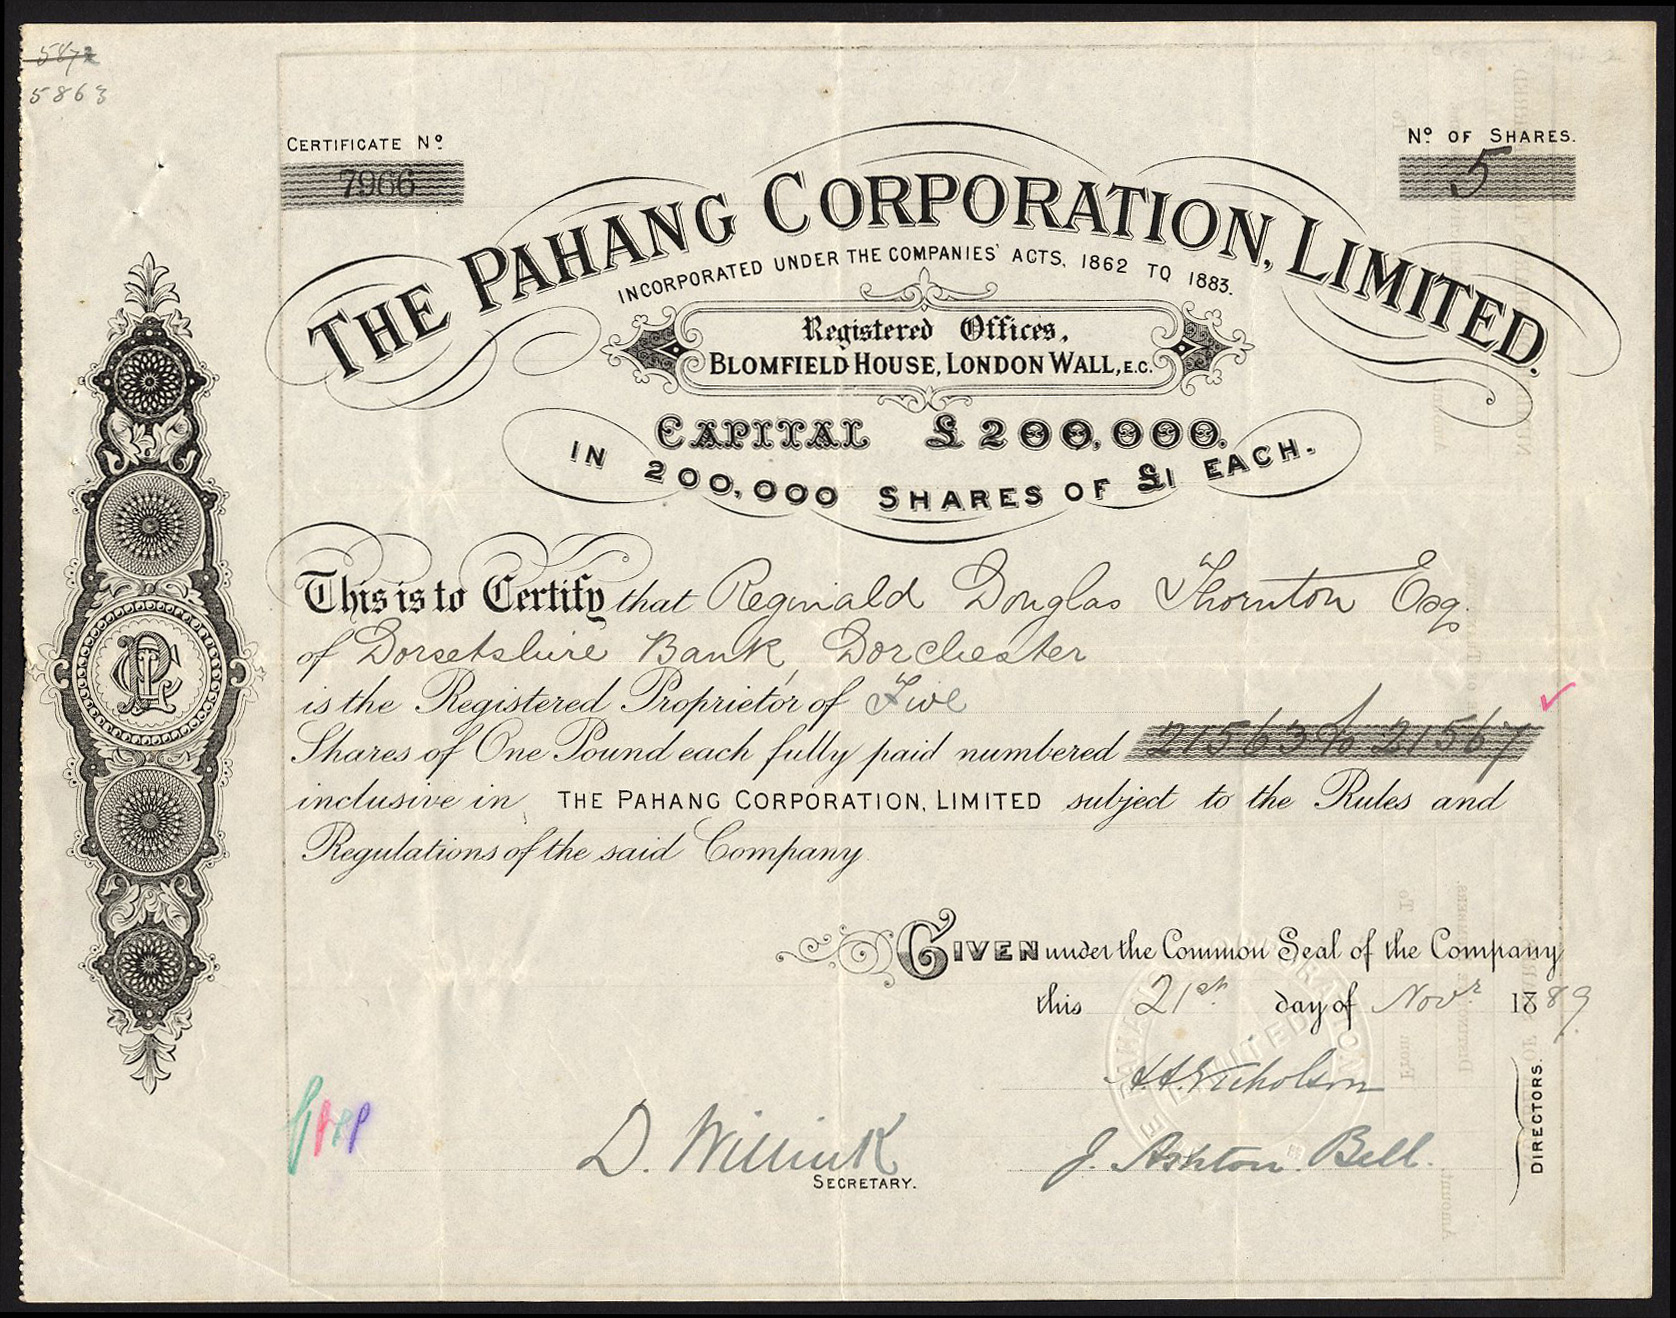 5872
5863
CERTIFICATE Nº
7966
Nº OF SHARES.
5
THE PAHANG CORPORATION, LIMITED.
INCORPORATED UNDER THE COMPANIES' ACTS, 1862 TO 1883.
Registered Offices,
BLOMFIELD HOUSE, LONDON WALL, E.C.
CAPITAL £200,000.
IN 200,000 SHARES OF £1 EACH.
This is to Certify that Reginald Douglas Thornton Esq.
of Dorsetshire Bank, Dorchester
is the Registered Proprietor of Five
Shares of One Pound each fully paid numbered 21563 to 21567
inclusive in THE PAHANG CORPORATION, LIMITED subject to the Rules and
Regulations of the said Company.
GIVEN under the Common Seal of the Company
this 21st day of Novr 1889
A.A. Nicholson
D. Willink
SECRETARY.
J. Ashton Bell.
DIRECTORS.